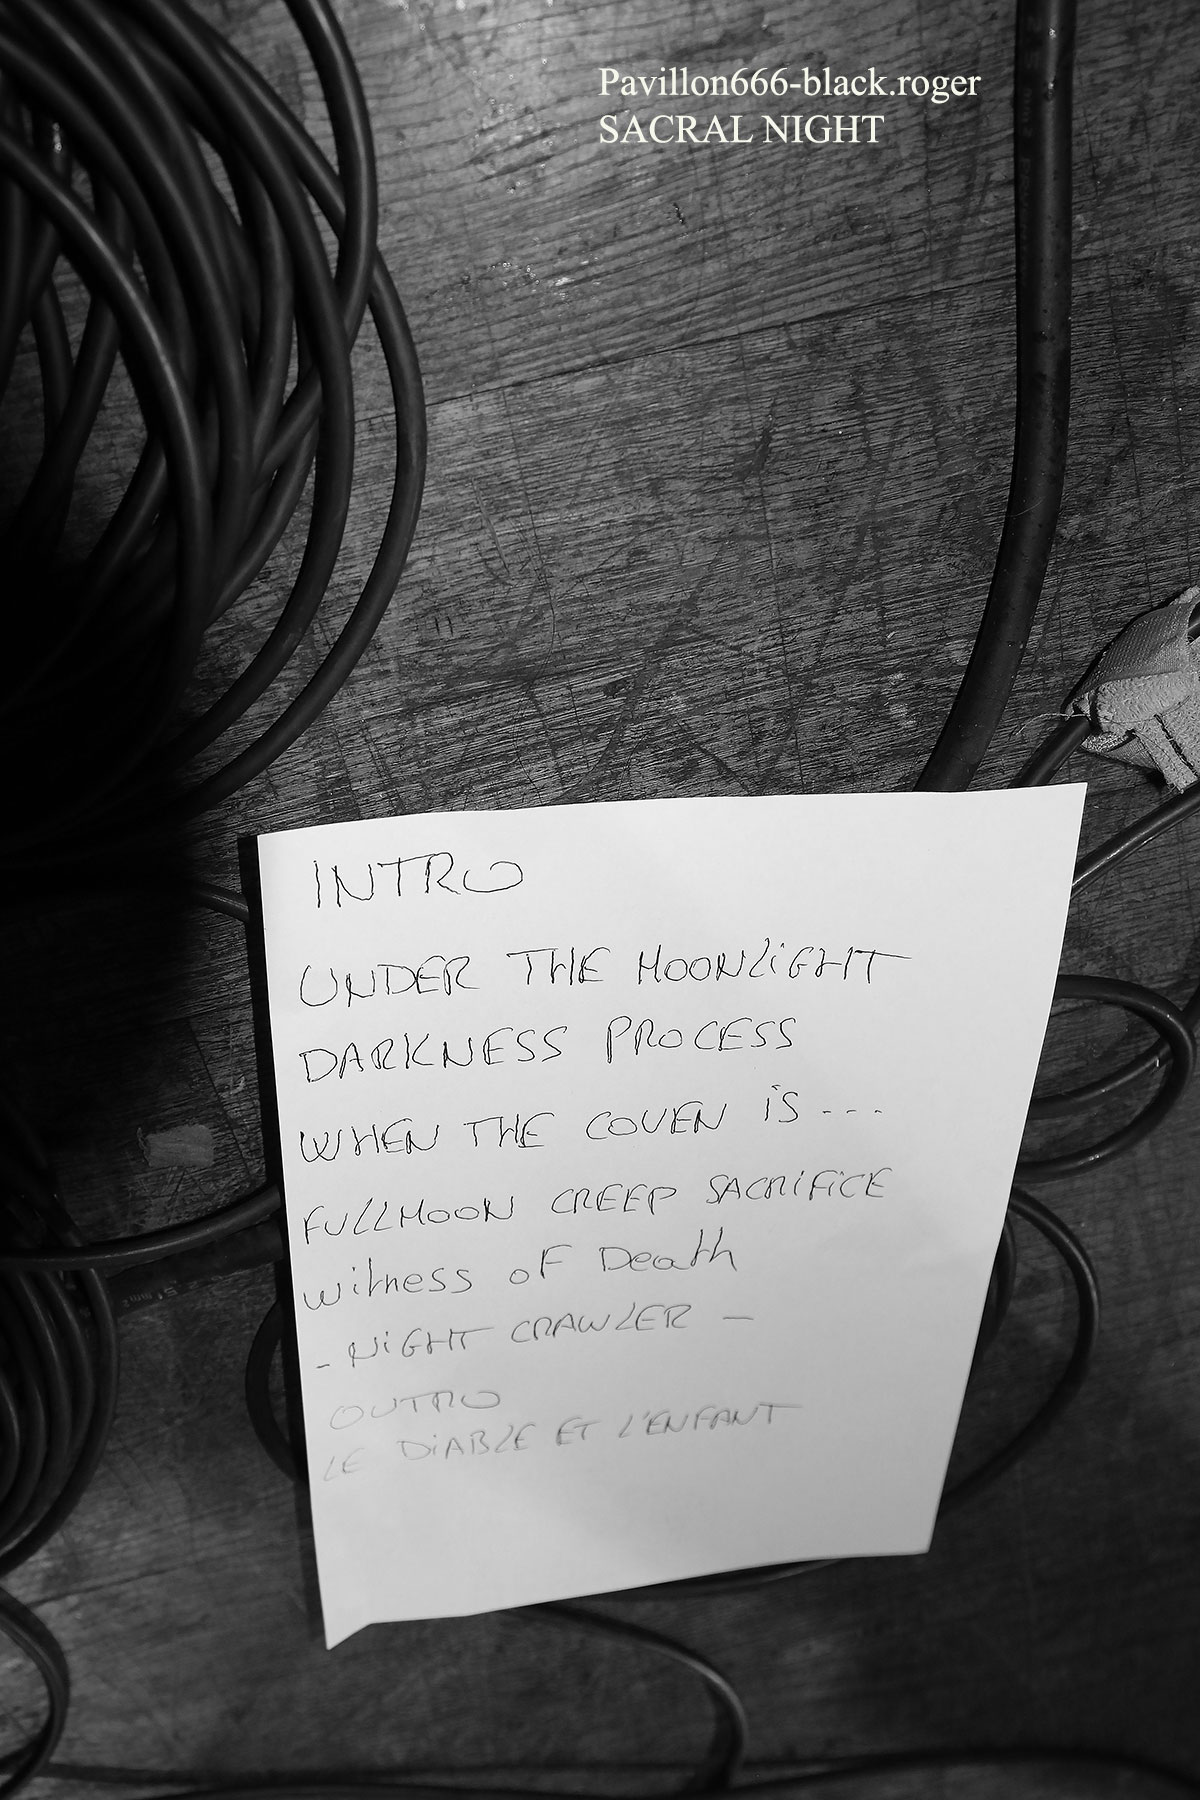 Pavillon666-black.roger
SACRAL NIGHT
INTRO
UNDER THE MOONLIGHT
DARKNESS PROCESS
WHEN THE COVEN IS ...
FULLMOON CREEP SACRIFICE
Witness of Death
- NIGHT CRAWLER -
OUTRO
LE DIABLE ET L'ENFANT